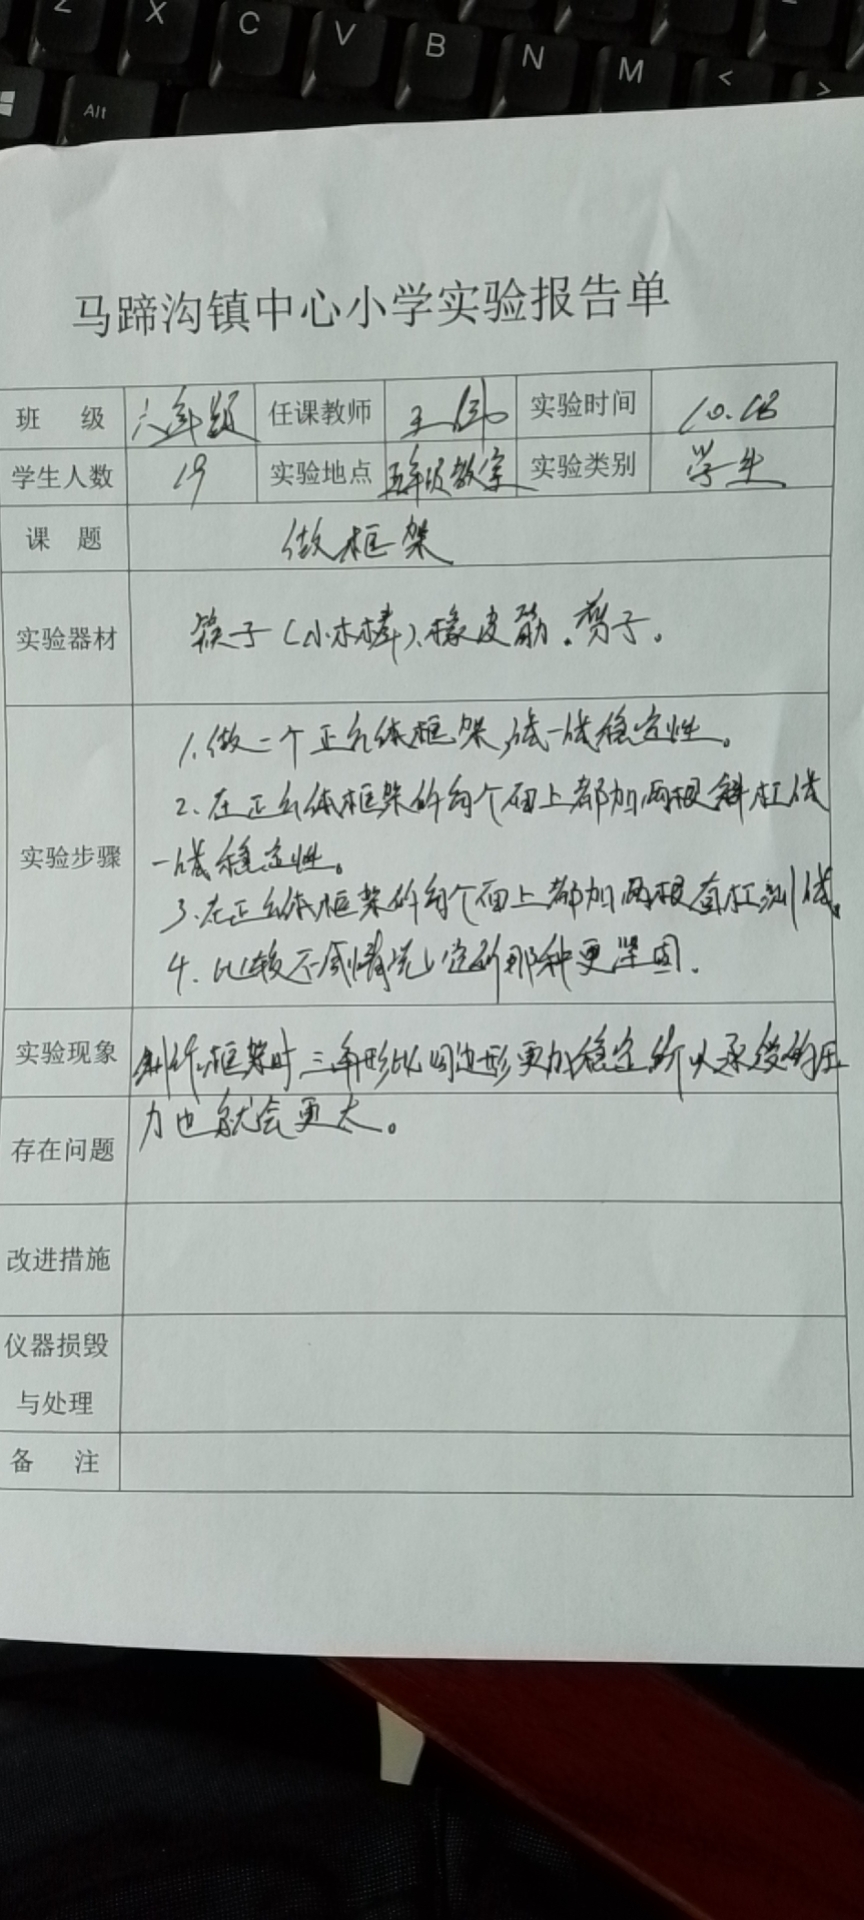 Z X C V B N M < >
Alt
马蹄沟镇中心小学实验报告单
班 级 六年级 任课教师 王伟 实验时间 10.18
学生人数 19 实验地点 五年级教室 实验类别 学生
课 题 做框架
实验器材 筷子(小木棒)、橡皮筋、剪子。
1、做一个正方体框架,试一试稳定性。
2、在正方体框架的每个面上都加两根斜杠试
实验步骤 一试稳定性。
3、在正方体框架的每个面上都加两根直杠测试。
4、比较不同情况,分析那种更坚固.
实验现象 制作框架时三角形比四边形更加稳定所以承受的压
力也就会更大。
存在问题
改进措施
仪器损毁
与处理
备 注